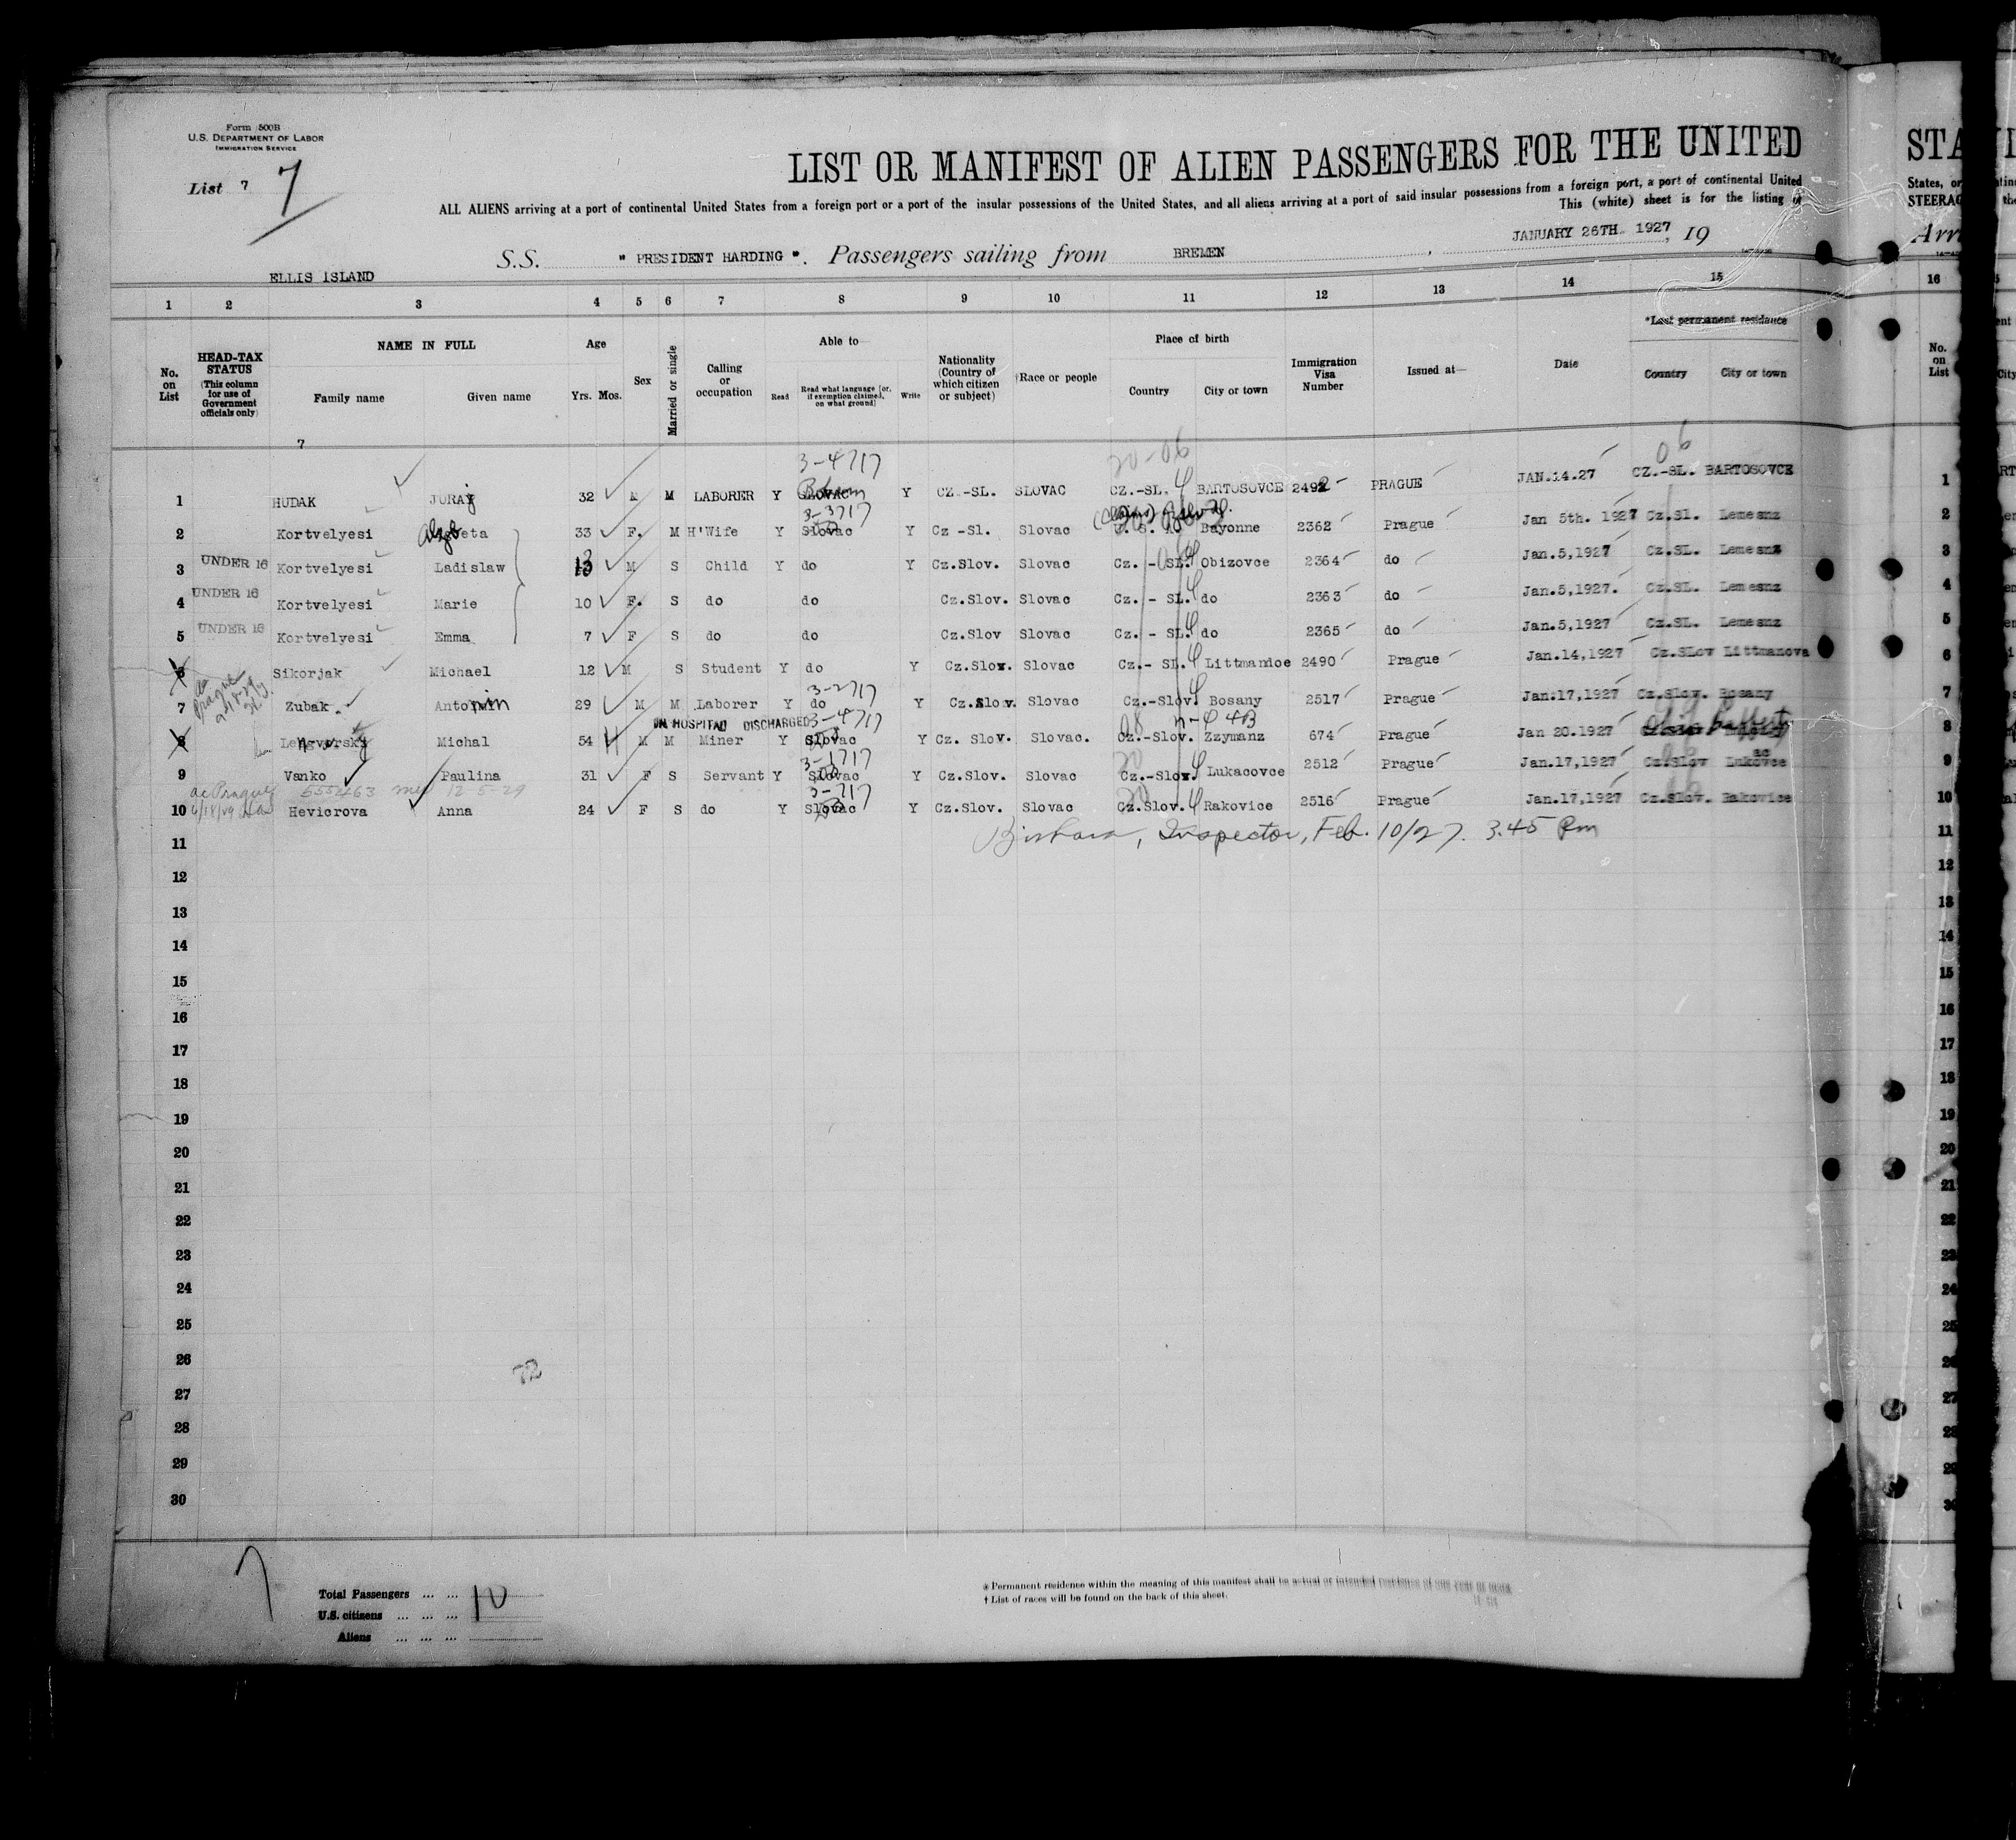 Form 500B
U.S. DEPARTMENT OF LABOR
IMMIGRATION SERVICE
List 7 7
LIST OR MANIFEST OF ALIEN PASSENGERS FOR THE UNITED
ALL ALIENS arriving at a port of continental United States from a foreign port or a port of the insular possessions of the United States, and all aliens arriving at a port of said insular possessions from a foreign port, a port of continental United
This (white) sheet is for the listing of
S.S. " PRESIDENT HARDING ". Passengers sailing from BREMEN , JANUARY 26TH. 1927, 19
ELLIS ISLAND
1 2 3 4 5 6 7 8 9 10 11 12 13 14 15
No. on List
HEAD-TAX STATUS (This column for use of Government officials only)
NAME IN FULL Family name Given name
Age Yrs. Mos.
Sex
Married or single
Calling or occupation
Able to— Read Read what language (or, if exemption claimed, on what ground) Write
Nationality (Country of which citizen or subject)
†Race or people
Place of birth Country City or town
Immigration Visa Number
Issued at—
Date
*Last permanent residence Country City or town
7
3-4717 20-06 06
1 HUDAK JURAJ 32 M M LABORER Y Y CZ.-SL. SLOVAC CZ.-SL. 4 BARTOSOVCE 2492 PRAGUE JAN.14.27 CZ.-SL. BARTOSOVCE
3-3717
2 Kortvelyesi Alzbeta 33 F. M H'Wife Y Slovac Y Cz-Sl. Slovac U.S.A. Bayonne 2362 Prague Jan 5th. 1927 Cz.Sl. Lemesnz
3 UNDER 16 Kortvelyesi Ladislaw 13 M S Child Y do Y Cz.Slov. Slovac Cz. - SL. 4 Obizovce 2364 do Jan.5,1927 Cz.SL. Lemesnz
4 UNDER 16 Kortvelyesi Marie 10 F. S do do Cz.Slov. Slovac Cz. - SL. 4 do 2363 do Jan.5,1927. Cz.SL. Lemesnz
5 UNDER 16 Kortvelyesi Emma 7 F S do do Cz.Slov Slovac Cz. - SL. 4 do 2365 do Jan.5,1927 Cz.SL. Lemesnz
6 Sikorjak Michael 12 M S Student Y do Y Cz.Slov. Slovac Cz.- SL. 4 Littmanioe 2490 Prague Jan.14,1927 Cz.SLov Littmanova
3-2717
7 Zubak. Antonin 29 M M Laborer Y do Y Cz.Slov. Slovac Cz.-Slov. 4 Bosany 2517 Prague Jan.17,1927 Cz.Slov. Bosany
IN HOSPITAL DISCHARGED 3-4717 4B
8 Michal 54 M M Miner Y Slovac Y Cz. Slov. Slovac. Cz.-Slov. Zzymanz 674 Prague Jan 20.1927
3-1717
9 Vanko Paulina 31 F S Servant Y Slovac Y Cz.Slov. Slovac Cz.-Slov. 4 Lukacovce 2512 Prague Jan.17,1927 Cz.Slov Lukovce
ac Prague 12-5-29 3-717
10 Hevierova Anna 24 F S do Y Slovac Y Cz.Slov. Slovac Cz.Slov. 4 Rakovice 2516 Prague Jan.17,1927 Cz.Slov. Rakovice
11 Inspector, Feb. 10/27. 3.45 Pm
12
13
14
15
16
17
18
19
20
21
22
23
24
25
26
72
27
28
29
30
7
Total Passengers ... ... 10
U.S. citizens ... ... ...
Aliens ... ... ...
* Permanent residence within the meaning of this manifest shall be actual or intended residence of one year or more
† List of races will be found on the back of this sheet.
STA
States, or
STEERAG
Arri
16
No. on List
1
2
3
4
5
6
7
8
9
10
11
12
13
14
15
16
17
18
19
20
21
22
23
24
25
26
27
28
29
30